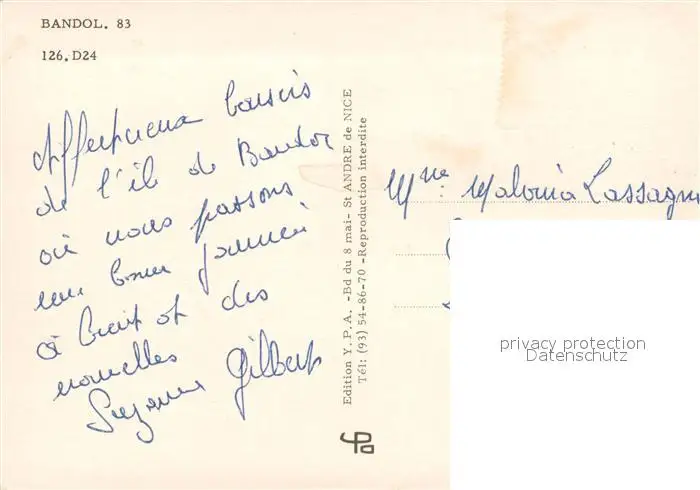 BANDOL. 83
126. D24
Affectueux baisers
de l'île de Bendor
où nous passons
une bonne journée
à bientôt des
nouvelles
Suzanne Gilbert
Edition Y. P. A. -Bd du 8 mai- St ANDRE de NICE
Tél: (93) 54-86-70 -Reproduction interdite
Mme Lassagn
privacy protection
Datenschutz